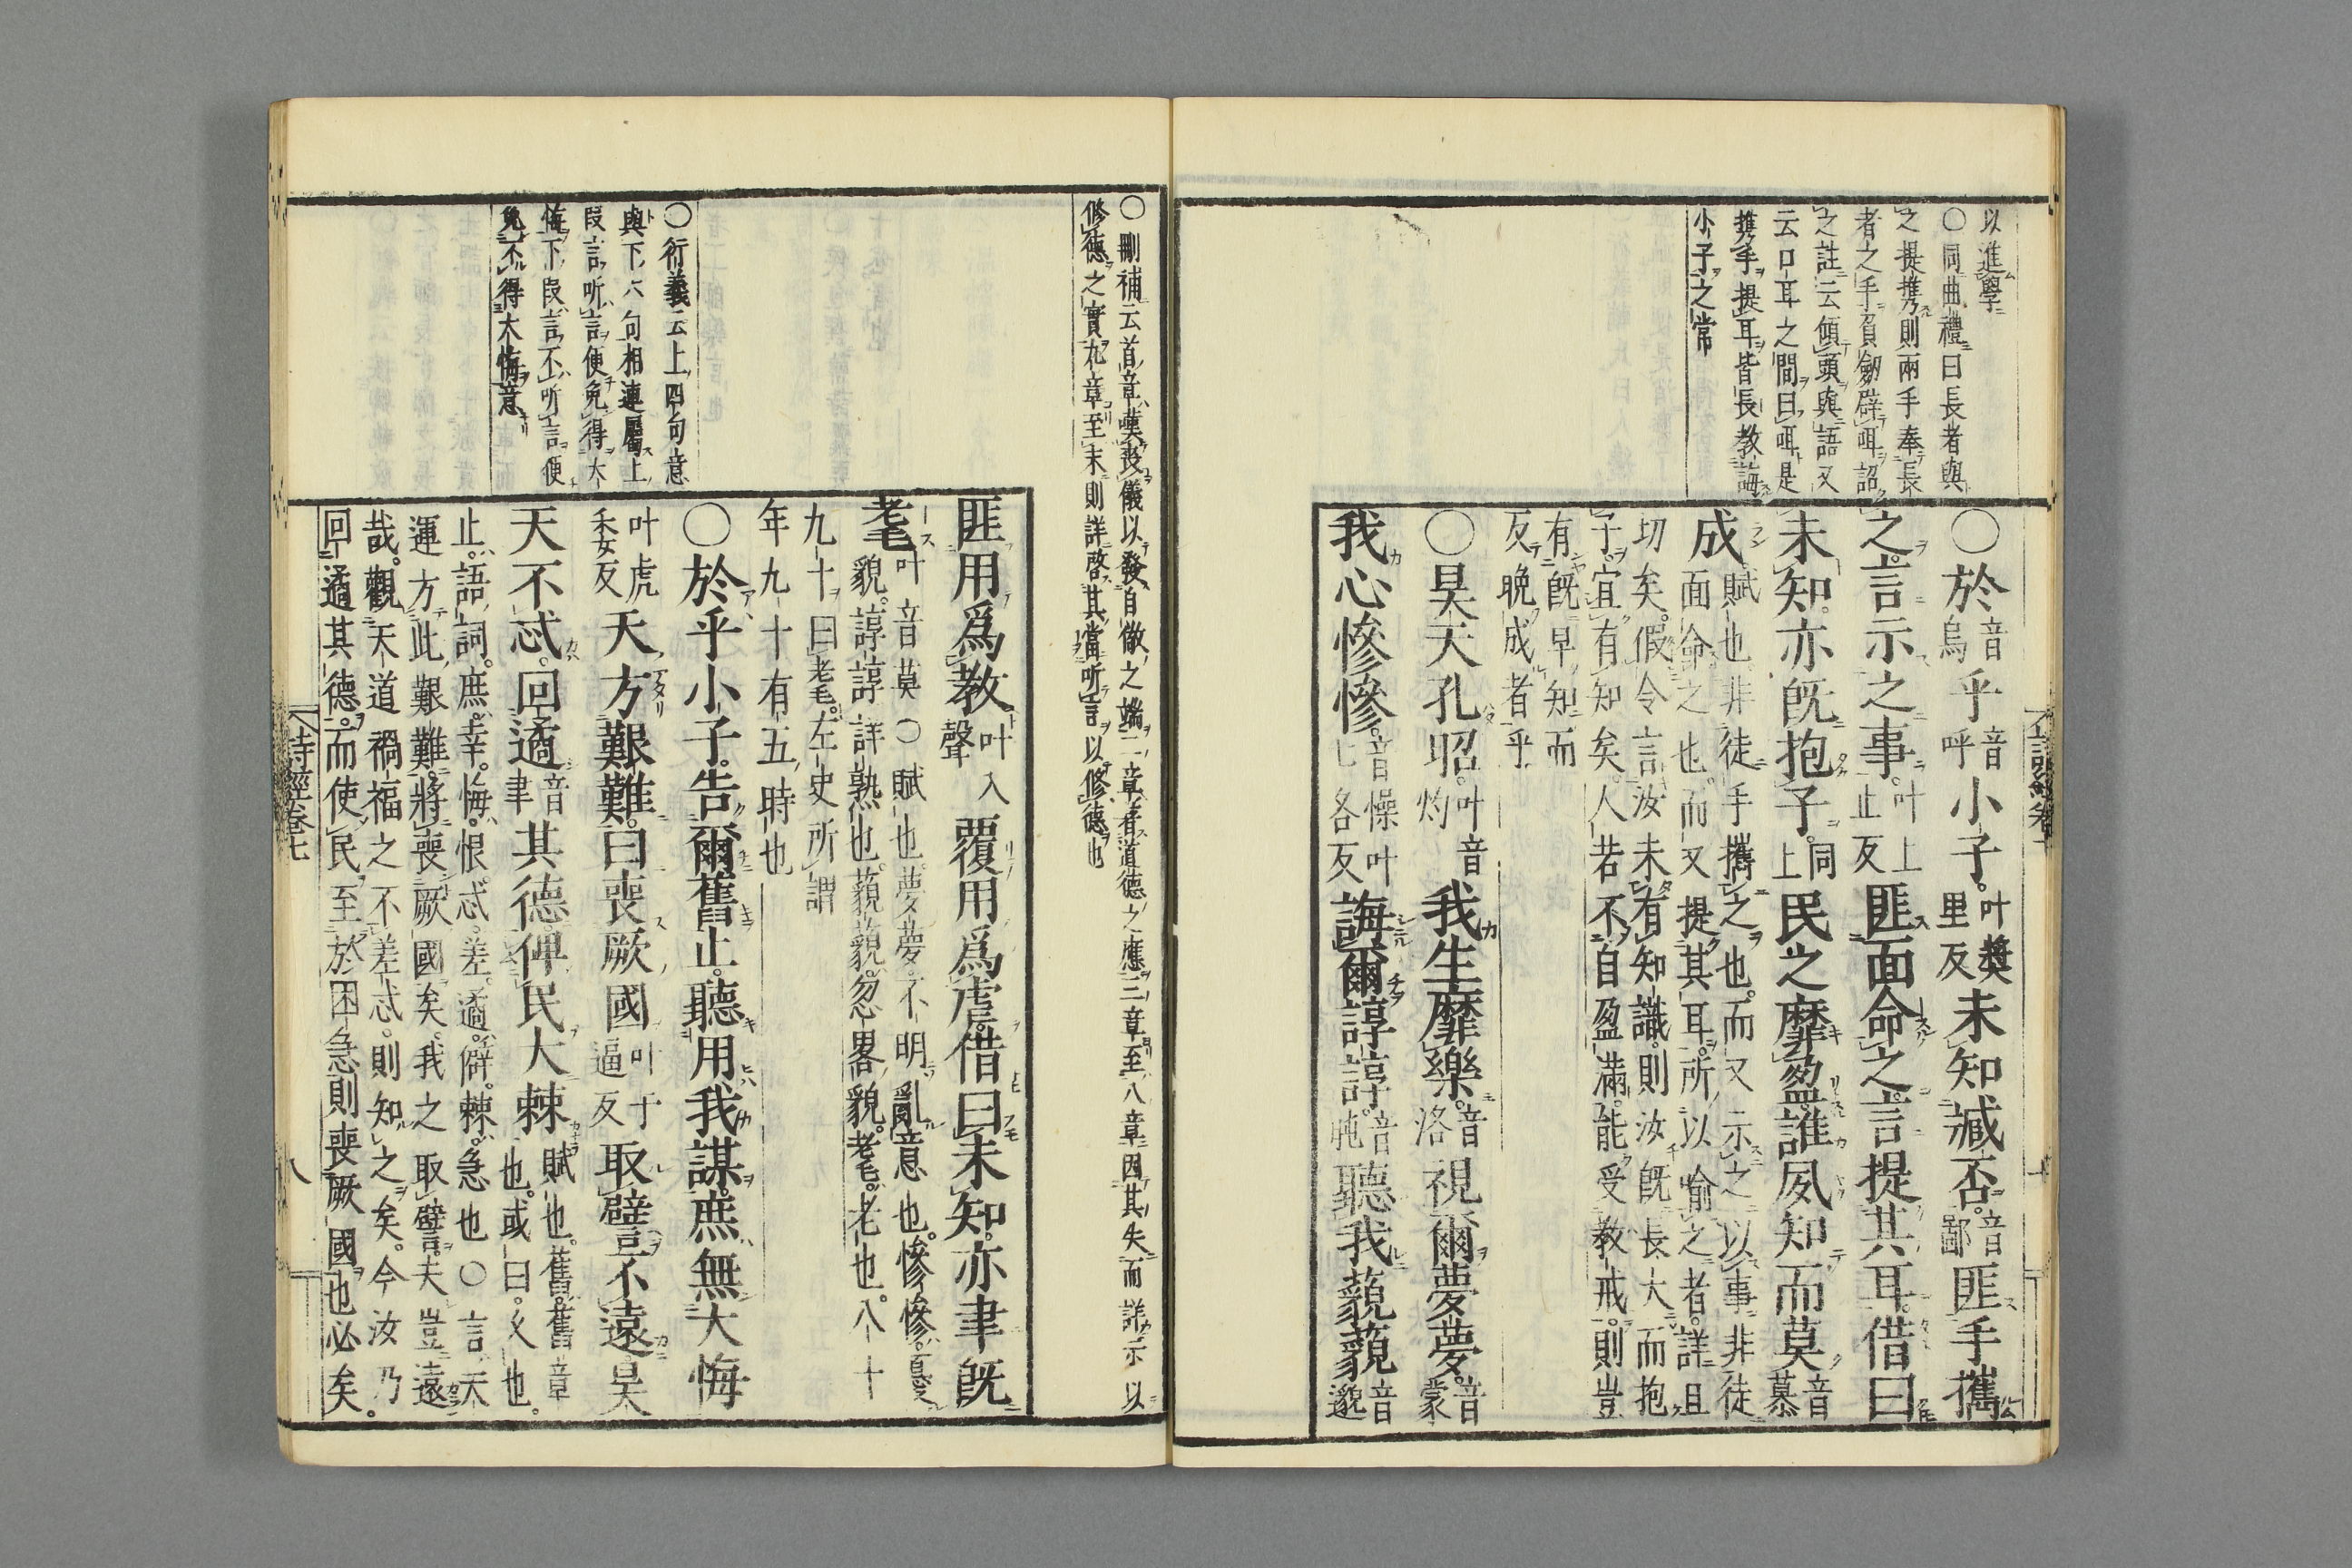 以進學
○同曲禮曰長者與
之提攜則兩手奉長
者之手負劒辟咡詔
之註云傾頭與語又
云口耳之間曰咡是
攜手提耳皆長教誨
小子之常
○於音烏乎音呼小子叶奬里反未知臧否音鄙匪手攜
之言示之事叶上止反匪面命之言提其耳借曰
未知亦旣抱子同上民之靡盈誰夙知而莫音慕
成賦也非徒手攜之也而又示之以事非徒
面命之也而又提其耳所以喻之者詳且
切矣假令言汝未有知識則汝旣長大而抱
子宜有知矣人若不自盈滿能受教戒則豈
有旣早知而
反晚成者乎
○昊天孔昭叶音灼我生靡樂音洛視爾夢夢音蒙
我心慘慘音懆叶七各反誨爾諄諄音肫聽我藐藐音邈
○刪補云首章嘆威儀以發自儆之端二章者道德之應三章至八章因其失而詳示以
修德之實九章至末則詳啓其當听言以修德也
匪用爲教叶入聲覆用爲虐借曰未知亦聿旣
耄叶音莫○賦也夢夢不明亂意也慘慘憂
貌諄諄詳熟也藐藐忽畧貌耄老也八十
九十曰耄左史所謂
年九十有五時也
○衍義云上四句意
與下六句相連屬上
段言听言便免得大
悔下段言不听言便
免不得大悔意
○於乎小子告爾舊止聽用我謀庶無大悔
叶虎委反天方艱難曰喪厥國叶于逼反取譬不遠昊
天不忒回遹音聿其德俾民大棘賦也舊舊章
也或曰久也
止語詞庶幸悔恨忒差遹僻棘急也○言天
運方此艱難將喪厥國矣我之取譬夫豈遠
哉觀天道禍福之不差忒則知之矣今汝乃
回遹其德而使民至於困急則喪厥國也必矣
詩經卷七
八